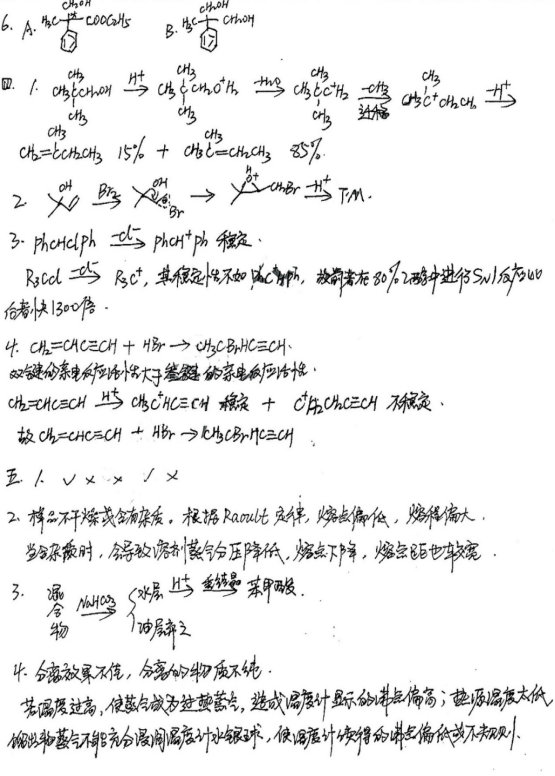 6. A. H₃C CH₂OH COOC₂H₅ B. H₃C CH₂OH CH₂OH
四. 1. CH₃CCH₂OH CH₃ CH₃ H⁺→ CH₃CCH₂O⁺H₂ CH₃ CH₃ -H₂O→ CH₃CC⁺H₂ CH₃ CH₃ -CH₃→ CH₃C⁺CH₂CH₃ CH₃ -H⁺→
CH₂=CCH₂CH₃ CH₃ 15% + CH₃C=CHCH₃ CH₃ 85%.
2. OH Br₂→ OH Br → H O⁺ CH₂Br -H⁺→ T.M.
3. PhCHClPh -Cl⁻→ PhCH⁺Ph 稳定.
R₃CCl -Cl⁻→ R₃C⁺, 其稳定性不如 故前者在80%乙醇中进行SN1反应比
后者快1300倍.
4. CH₂=CHC≡CH + HBr → CH₃CBrHC≡CH.
双键的亲电反应活性大于叁键的亲电反应活性.
CH₂=CHC≡CH H⁺→ CH₃C⁺HC≡CH 稳定 + C⁺H₂CH₂C≡CH 不稳定.
故 CH₂=CHC≡CH + HBr → CH₃CBrHC≡CH
五. 1. √ × × √ ×
2. 样品不干燥或含有杂质。根据Raoult定律, 熔点偏低, 熔程偏大.
当含杂质时, 会导致溶剂蒸气分压降低, 熔点下降, 熔点距也较宽.
3. 混合物 NaHCO₃→ { 水层 H⁺→ 重结晶→ 苯甲酸.
油层弃之
4. 分离效果不佳, 分离的物质不纯.
若温度过高, 使蒸气成为过热蒸气, 造成温度计显示的沸点偏高; 热源温度太低,
馏出物蒸气不能充分浸润温度计水银球, 使温度计读得的沸点偏低或不规则.